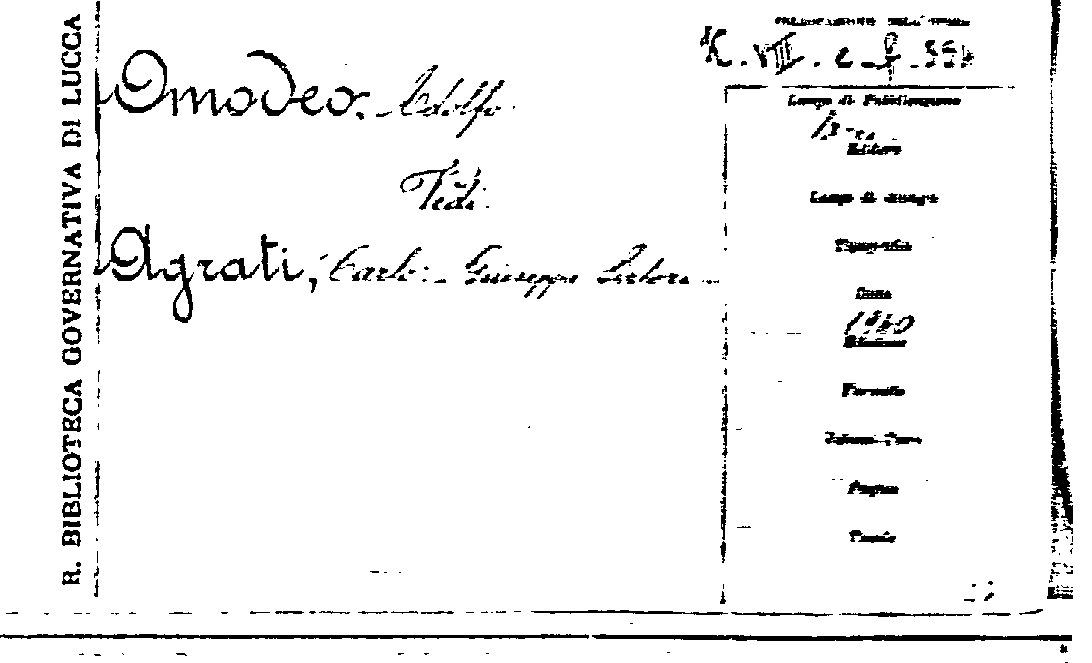 R. BIBLIOTECA GOVERNATIVA DI LUCCA
Omodeo. Adolfo.
Vedi.
Agrati, Carlo: - Giuseppe Sirtori -
COLLOCAZIONE DELL'OPERA
Luogo di Pubblicazione
Editore
Luogo di stampa
Tipografia
Data
1940
Edizione
Formato
Volume-Parte
Pagine
Tavole